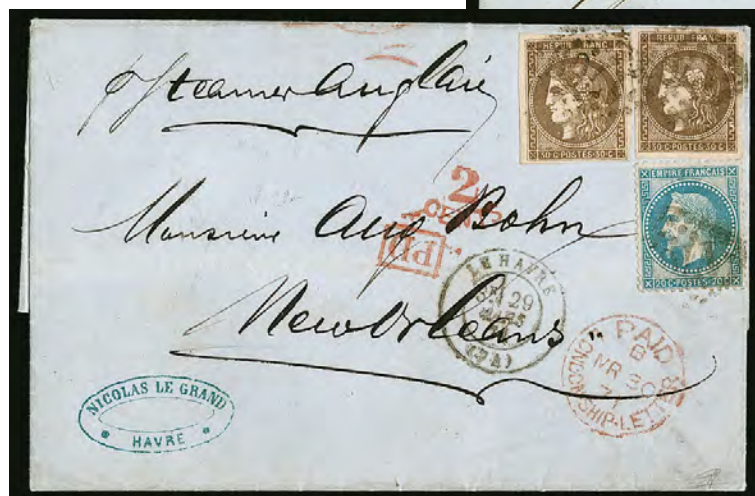 p Steamer Anglais
REPUB·FRANC·
30·C·POSTES·30·C
REPUB·FRANC·
30·C·POSTES·30·C
EMPIRE FRANÇAIS
20·C·POSTES·20·C
2
CENTS
PD
Monsieur Aug Bohn
New Orleans
LE HAVRE
29
MARS
(74)
PAID
MR 30
71
LONDON·SHIP-LETTER
NICOLAS LE GRAND
HAVRE